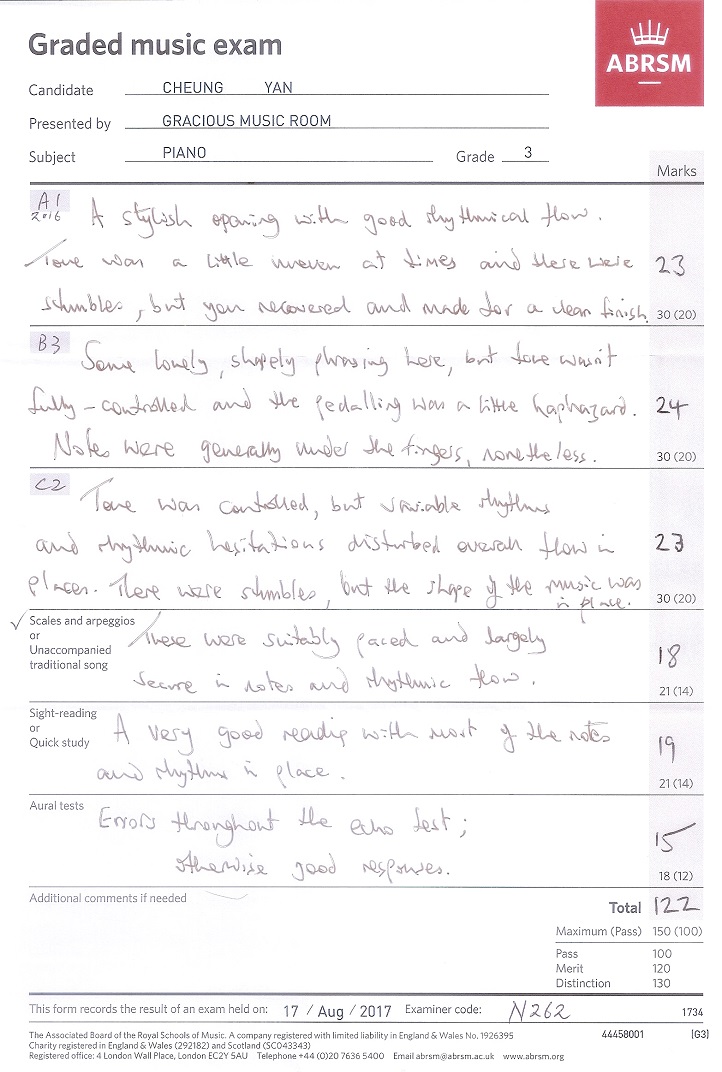 Graded music exam
ABRSM
Candidate CHEUNG YAN
Presented by GRACIOUS MUSIC ROOM
Subject PIANO Grade 3
Marks
A1
2016
A stylish opening with good rhythmical flow.
Tone was a little uneven at times and there were 23
stumbles, but you recovered and made for a clean finish. 30 (20)
B3
Some lovely, shapely phrasing here, but tone wasn't
fully-controlled and the pedalling was a little haphazard. 24
Notes were generally under the fingers, nonetheless. 30 (20)
C2
Tone was controlled, but variable rhythms
and rhythmic hesitations disturbed overall flow in 23
places. There were stumbles, but the shape of the music was
in place. 30 (20)
✓ Scales and arpeggios
or
Unaccompanied
traditional song
These were suitably paced and largely 18
secure in notes and rhythmic flow. 21 (14)
Sight-reading
or
Quick study
A very good reading with most of the notes 19
and rhythms in place. 21 (14)
Aural tests
Errors throughout the echo test; 15
otherwise good responses. 18 (12)
Additional comments if needed
Total 122
Maximum (Pass) 150 (100)
Pass 100
Merit 120
Distinction 130
This form records the result of an exam held on: 17 / Aug / 2017 Examiner code: N262 1734
The Associated Board of the Royal Schools of Music. A company registered with limited liability in England & Wales No. 1926395 44458001 [G3]
Charity registered in England & Wales (292182) and Scotland (SC043343)
Registered office: 4 London Wall Place, London EC2Y 5AU Telephone +44 (0)20 7636 5400 Email abrsm@abrsm.ac.uk www.abrsm.org